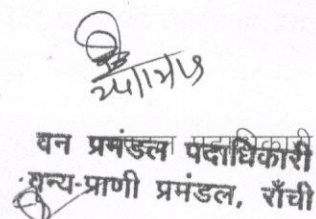 वन प्रमंडल पदाधिकारी
वन्य-प्राणी प्रमंडल, राँची